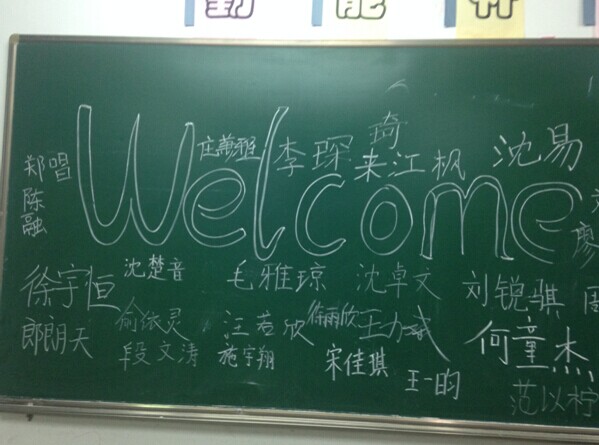 Welcome
庄蕭雅 李琛 奇 来江枫 沈易
郑唱
陈融
廖
徐宇恒 沈楚音 毛雅琼 沈卓文 刘锐骐 周
郎朗天 俞依灵 汪若欣 徐丽欣 王力威 何童杰
段文涛 施宇翔 宋佳琪 王一昀 范以柠